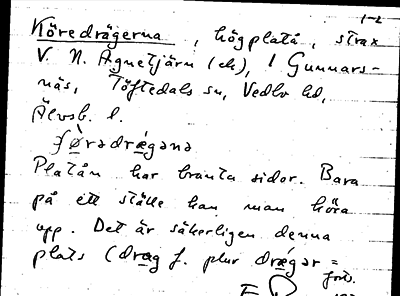 1-2
Köredrägerna, högplatå, strax
V. N. Agnetjärn (ek), i Gunnars-
näs, Töftedals sn, Vedbo hd,
Älvsb. l.
ʃø̀rədrægənə
Platån har branta sidor. Bara
på ett ställe kan man köra
upp. Det är säkerligen denna
plats (drag f. plur drægər =
ford.